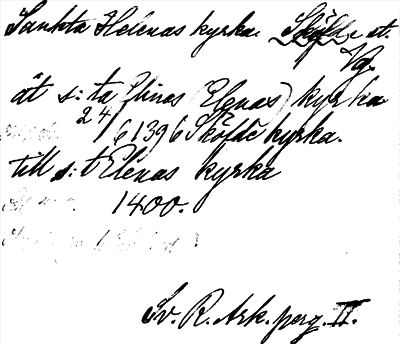 Sankta Helenas kyrka. Sköfde st.
Vg.
åt s:ta Elinos (Elenas) kyrka
24/6 1396 Sköfde kyrka.
till s:t Elenas kyrka
1400.
Sv. R. Ark. perg. II.